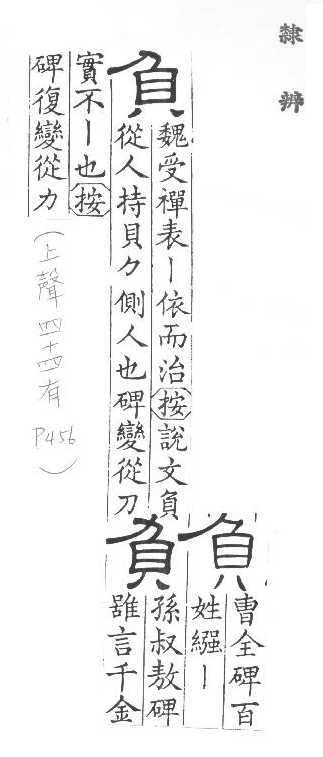 隸辨
負
魏受禪表丨依而治按說文負
從人持貝⺈側人也碑變從刀
負
曹全碑百
姓繦丨
負
孫叔敖碑
雖言千金
實不丨也按
碑復變從力
(上聲四十四有 P456)